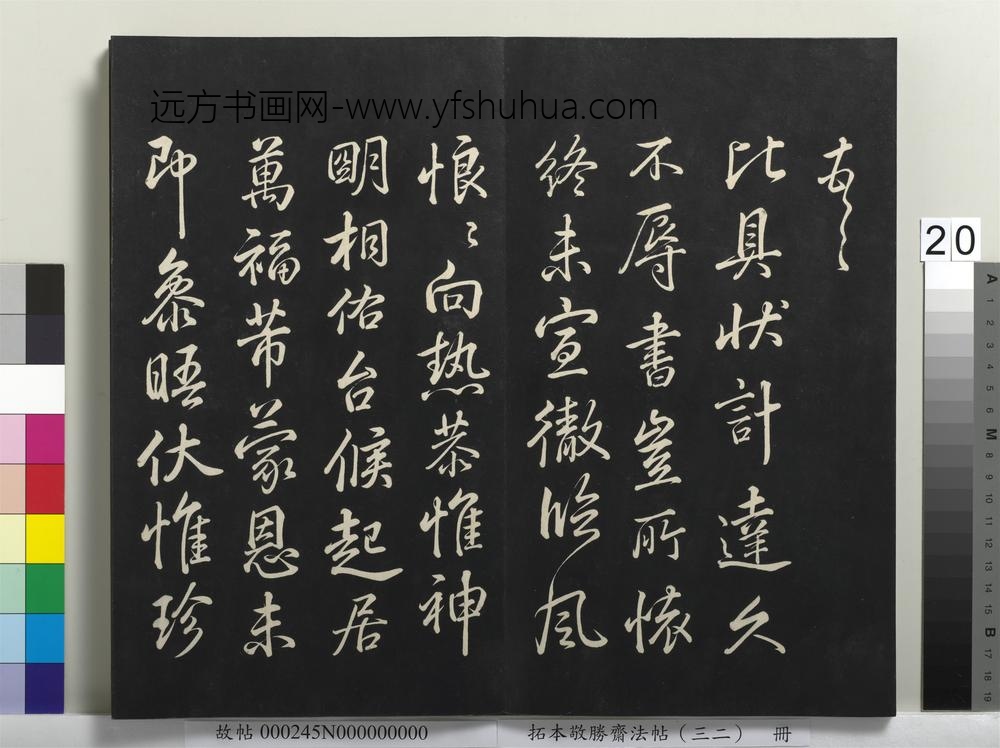 远方书画网-www.yfshuhua.com
比具状計達久
不辱書豈所懐
終未宣徹臨風
悢〻向熱恭惟神
明相佑台候起居
萬福芾蒙恩未
即叅晤伏惟珍
20
A
1
2
3
4
5
6
M
8
9
10
11
12
13
14
15
B
17
18
19
故帖 000245N000000000
拓本敬勝齋法帖（三二） 冊